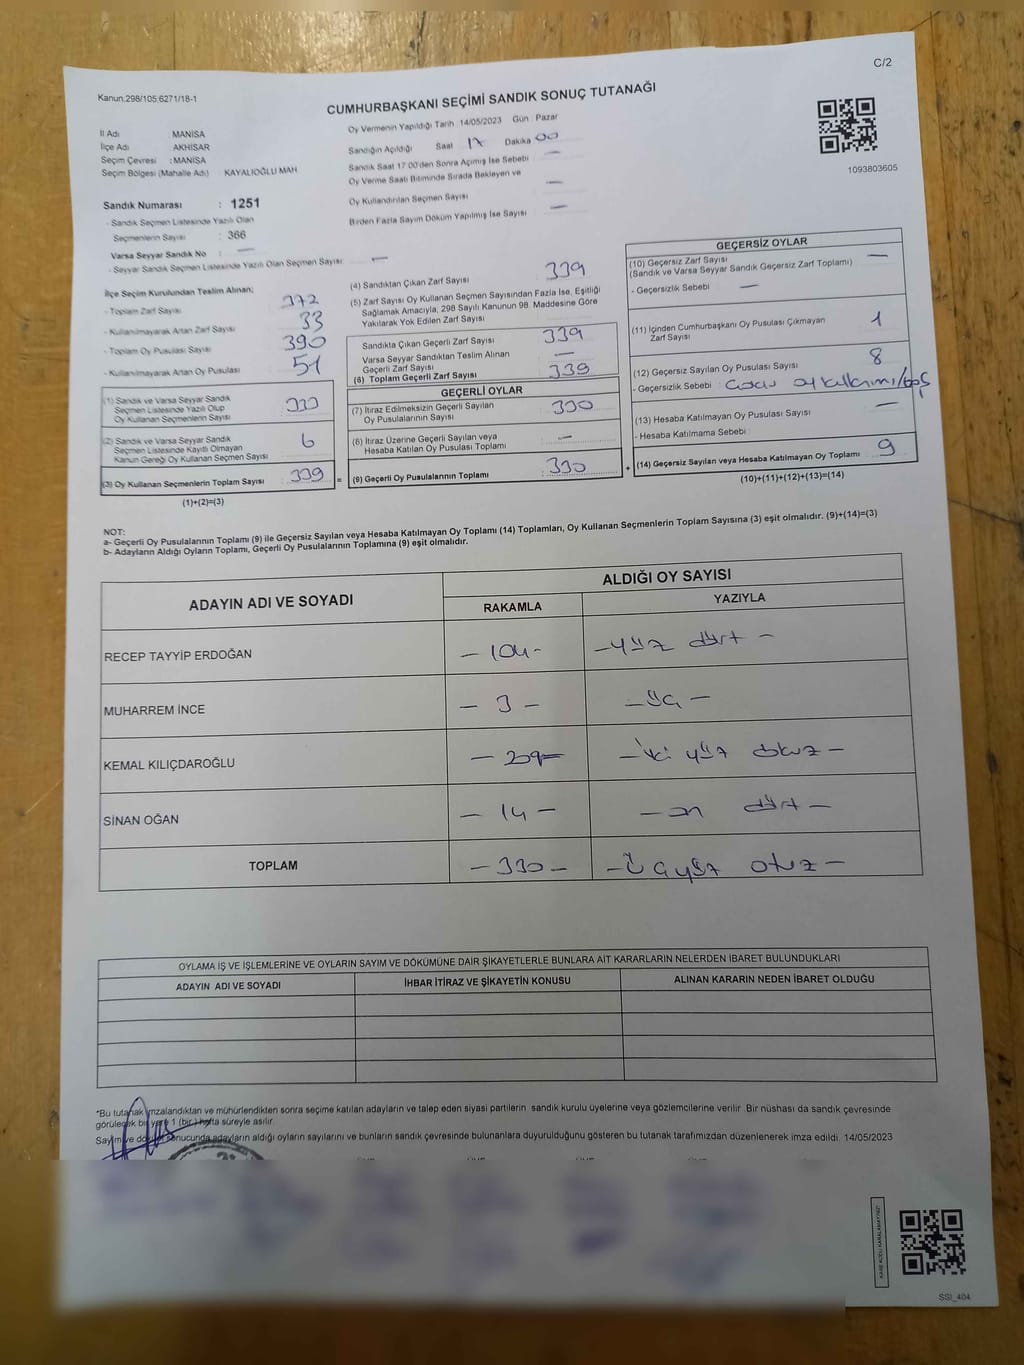 C/2
Kanun:298/105;6271/18-1
CUMHURBAŞKANI SEÇİMİ SANDIK SONUÇ TUTANAĞI
İl Adı : MANİSA
İlçe Adı : AKHİSAR
Seçim Çevresi : MANİSA
Seçim Bölgesi (Mahalle Adı) : KAYALIOĞLU MAH
Oy Vermenin Yapıldığı Tarih :14/05/2023 Gün : Pazar
Sandığın Açıldığı Saat 17 Dakika 00
Sandık Saat 17.00'den Sonra Açımış İse Sebebi —
Oy Verme Saati Bitiminde Sırada Bekleyen ve
Oy Kullandırılan Seçmen Sayısı —
Birden Fazla Sayım Döküm Yapılmış İse Sayısı —
1093803605
Sandık Numarası : 1251
- Sandık Seçmen Listesinde Yazılı Olan
Seçmenlerin Sayısı : 366
Varsa Seyyar Sandık No : —
- Seyyar Sandık Seçmen Listesinde Yazılı Olan Seçmen Sayısı: —
İlçe Seçim Kurulundan Teslim Alınan;
- Toplam Zarf Sayısı : 372
- Kullanılmayarak Artan Zarf Sayısı : 33
- Toplam Oy Pusulası Sayısı : 390
- Kullanılmayarak Artan Oy Pusulası : 51
(1) Sandık ve Varsa Seyyar Sandık
Seçmen Listesinde Yazılı Olup
Oy Kullanan Seçmenlerin Sayısı : 333
(2) Sandık ve Varsa Seyyar Sandık
Seçmen Listesinde Kayıtlı Olmayan
Kanun Gereği Oy Kullanan Seçmen Sayısı : 6
(3) Oy Kullanan Seçmenlerin Toplam Sayısı : 339 =
(1)+(2)=(3)
(4) Sandıktan Çıkan Zarf Sayısı : 339
(5) Zarf Sayısı Oy Kullanan Seçmen Sayısından Fazla İse, Eşitliği
Sağlamak Amacıyla, 298 Sayılı Kanunun 98. Maddesine Göre
Yakılarak Yok Edilen Zarf Sayısı :
Sandıkta Çıkan Geçerli Zarf Sayısı : 339
Varsa Seyyar Sandıktan Teslim Alınan
Geçerli Zarf Sayısı : —
(6) Toplam Geçerli Zarf Sayısı : 339
GEÇERLİ OYLAR
(7) İtiraz Edilmeksizin Geçerli Sayılan
Oy Pusulalarının Sayısı : 330
(8) İtiraz Üzerine Geçerli Sayılan veya
Hesaba Katılan Oy Pusulası Toplamı : —
(9) Geçerli Oy Pusulalarının Toplamı : 330 +
GEÇERSİZ OYLAR
(10) Geçersiz Zarf Sayısı
(Sandık ve Varsa Seyyar Sandık Geçersiz Zarf Toplamı) —
- Geçersizlik Sebebi : —
(11) İçinden Cumhurbaşkanı Oy Pusulası Çıkmayan
Zarf Sayısı 1
(12) Geçersiz Sayılan Oy Pusulası Sayısı : 8
- Geçersizlik Sebebi : oy kullanımı/boş
(13) Hesaba Katılmayan Oy Pusulası Sayısı : —
- Hesaba Katılmama Sebebi :
(14) Geçersiz Sayılan veya Hesaba Katılmayan Oy Toplamı : 9
(10)+(11)+(12)+(13)=(14)
NOT:
a- Geçerli Oy Pusulalarının Toplamı (9) ile Geçersiz Sayılan veya Hesaba Katılmayan Oy Toplamı (14) Toplamları, Oy Kullanan Seçmenlerin Toplam Sayısına (3) eşit olmalıdır. (9)+(14)=(3)
b- Adayların Aldığı Oyların Toplamı, Geçerli Oy Pusulalarının Toplamına (9) eşit olmalıdır.
ADAYIN ADI VE SOYADI ALDIĞI OY SAYISI
RAKAMLA YAZIYLA
RECEP TAYYİP ERDOĞAN – 104 – – yüz dört –
MUHARREM İNCE – 3 – – üç –
KEMAL KILIÇDAROĞLU – 209 – – iki yüz dokuz –
SİNAN OĞAN – 14 – – on dört –
TOPLAM – 330 – – Üç yüz otuz –
OYLAMA İŞ VE İŞLEMLERİNE VE OYLARIN SAYIM VE DÖKÜMÜNE DAİR ŞİKAYETLERLE BUNLARA AİT KARARLARIN NELERDEN İBARET BULUNDUKLARI
ADAYIN ADI VE SOYADI İHBAR İTİRAZ VE ŞİKAYETİN KONUSU ALINAN KARARIN NEDEN İBARET OLDUĞU
*Bu tutanak imzalandıktan ve mühürlendikten sonra seçime katılan adayların ve talep eden siyasi partilerin sandık kurulu üyelerine veya gözlemcilerine verilir. Bir nüshası da sandık çevresinde
görülecek bir yere 1 (bir) hafta süreyle asılır.
Sayım ve döküm sonucunda adayların aldığı oyların sayılarını ve bunların sandık çevresinde bulunanlara duyurulduğunu gösteren bu tutanak tarafımızdan düzenlenerek imza edildi. 14/05/2023
KARE KODU KARALAMAYINIZ!
SSI_404